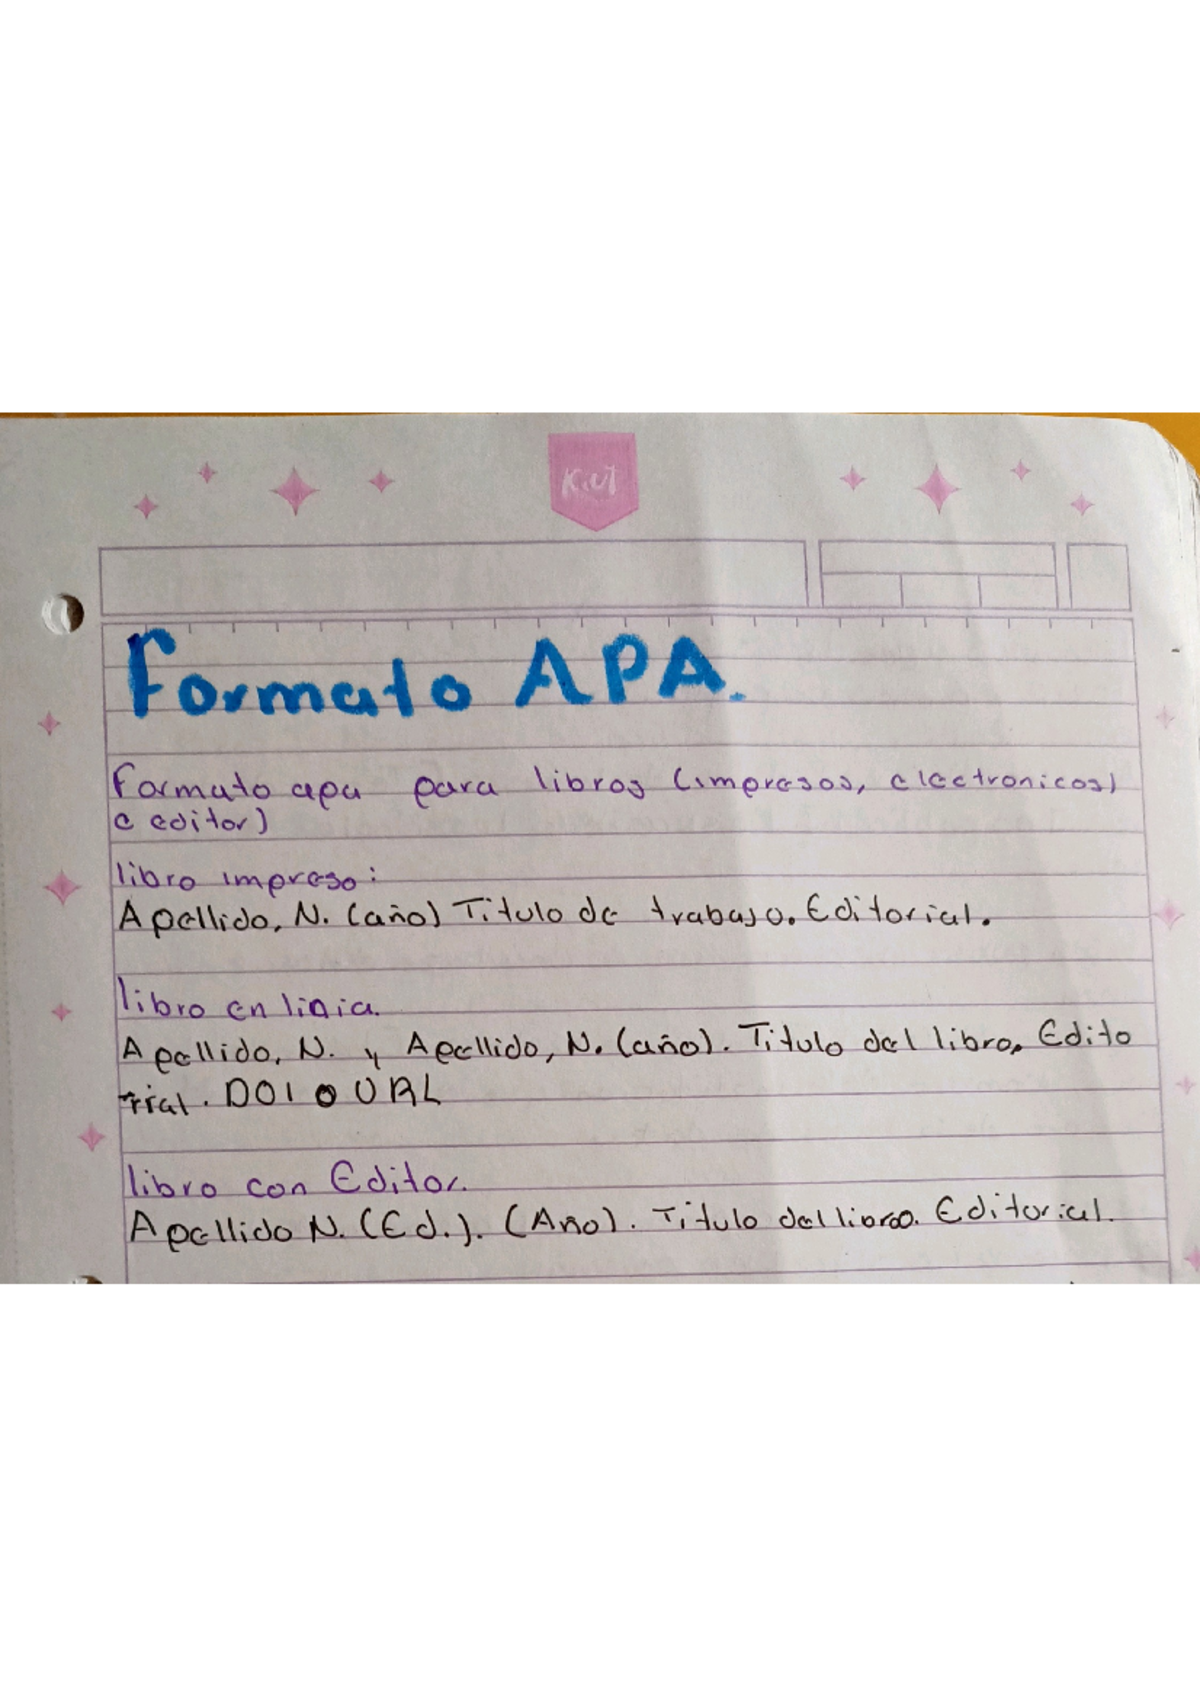 Kiut
Formato APA.
Formato apa para libros (impresos, electronicos)
e editor)
libro impreso:
Apellido, N. (año) Titulo de trabajo. Editorial.
libro en linia.
Apellido, N. y Apellido, N. (año). Titulo del libro, Edito
rial. DOI o URL
libro con Editor.
Apellido N. (Ed.). (Año). Titulo del libro. Editorial.